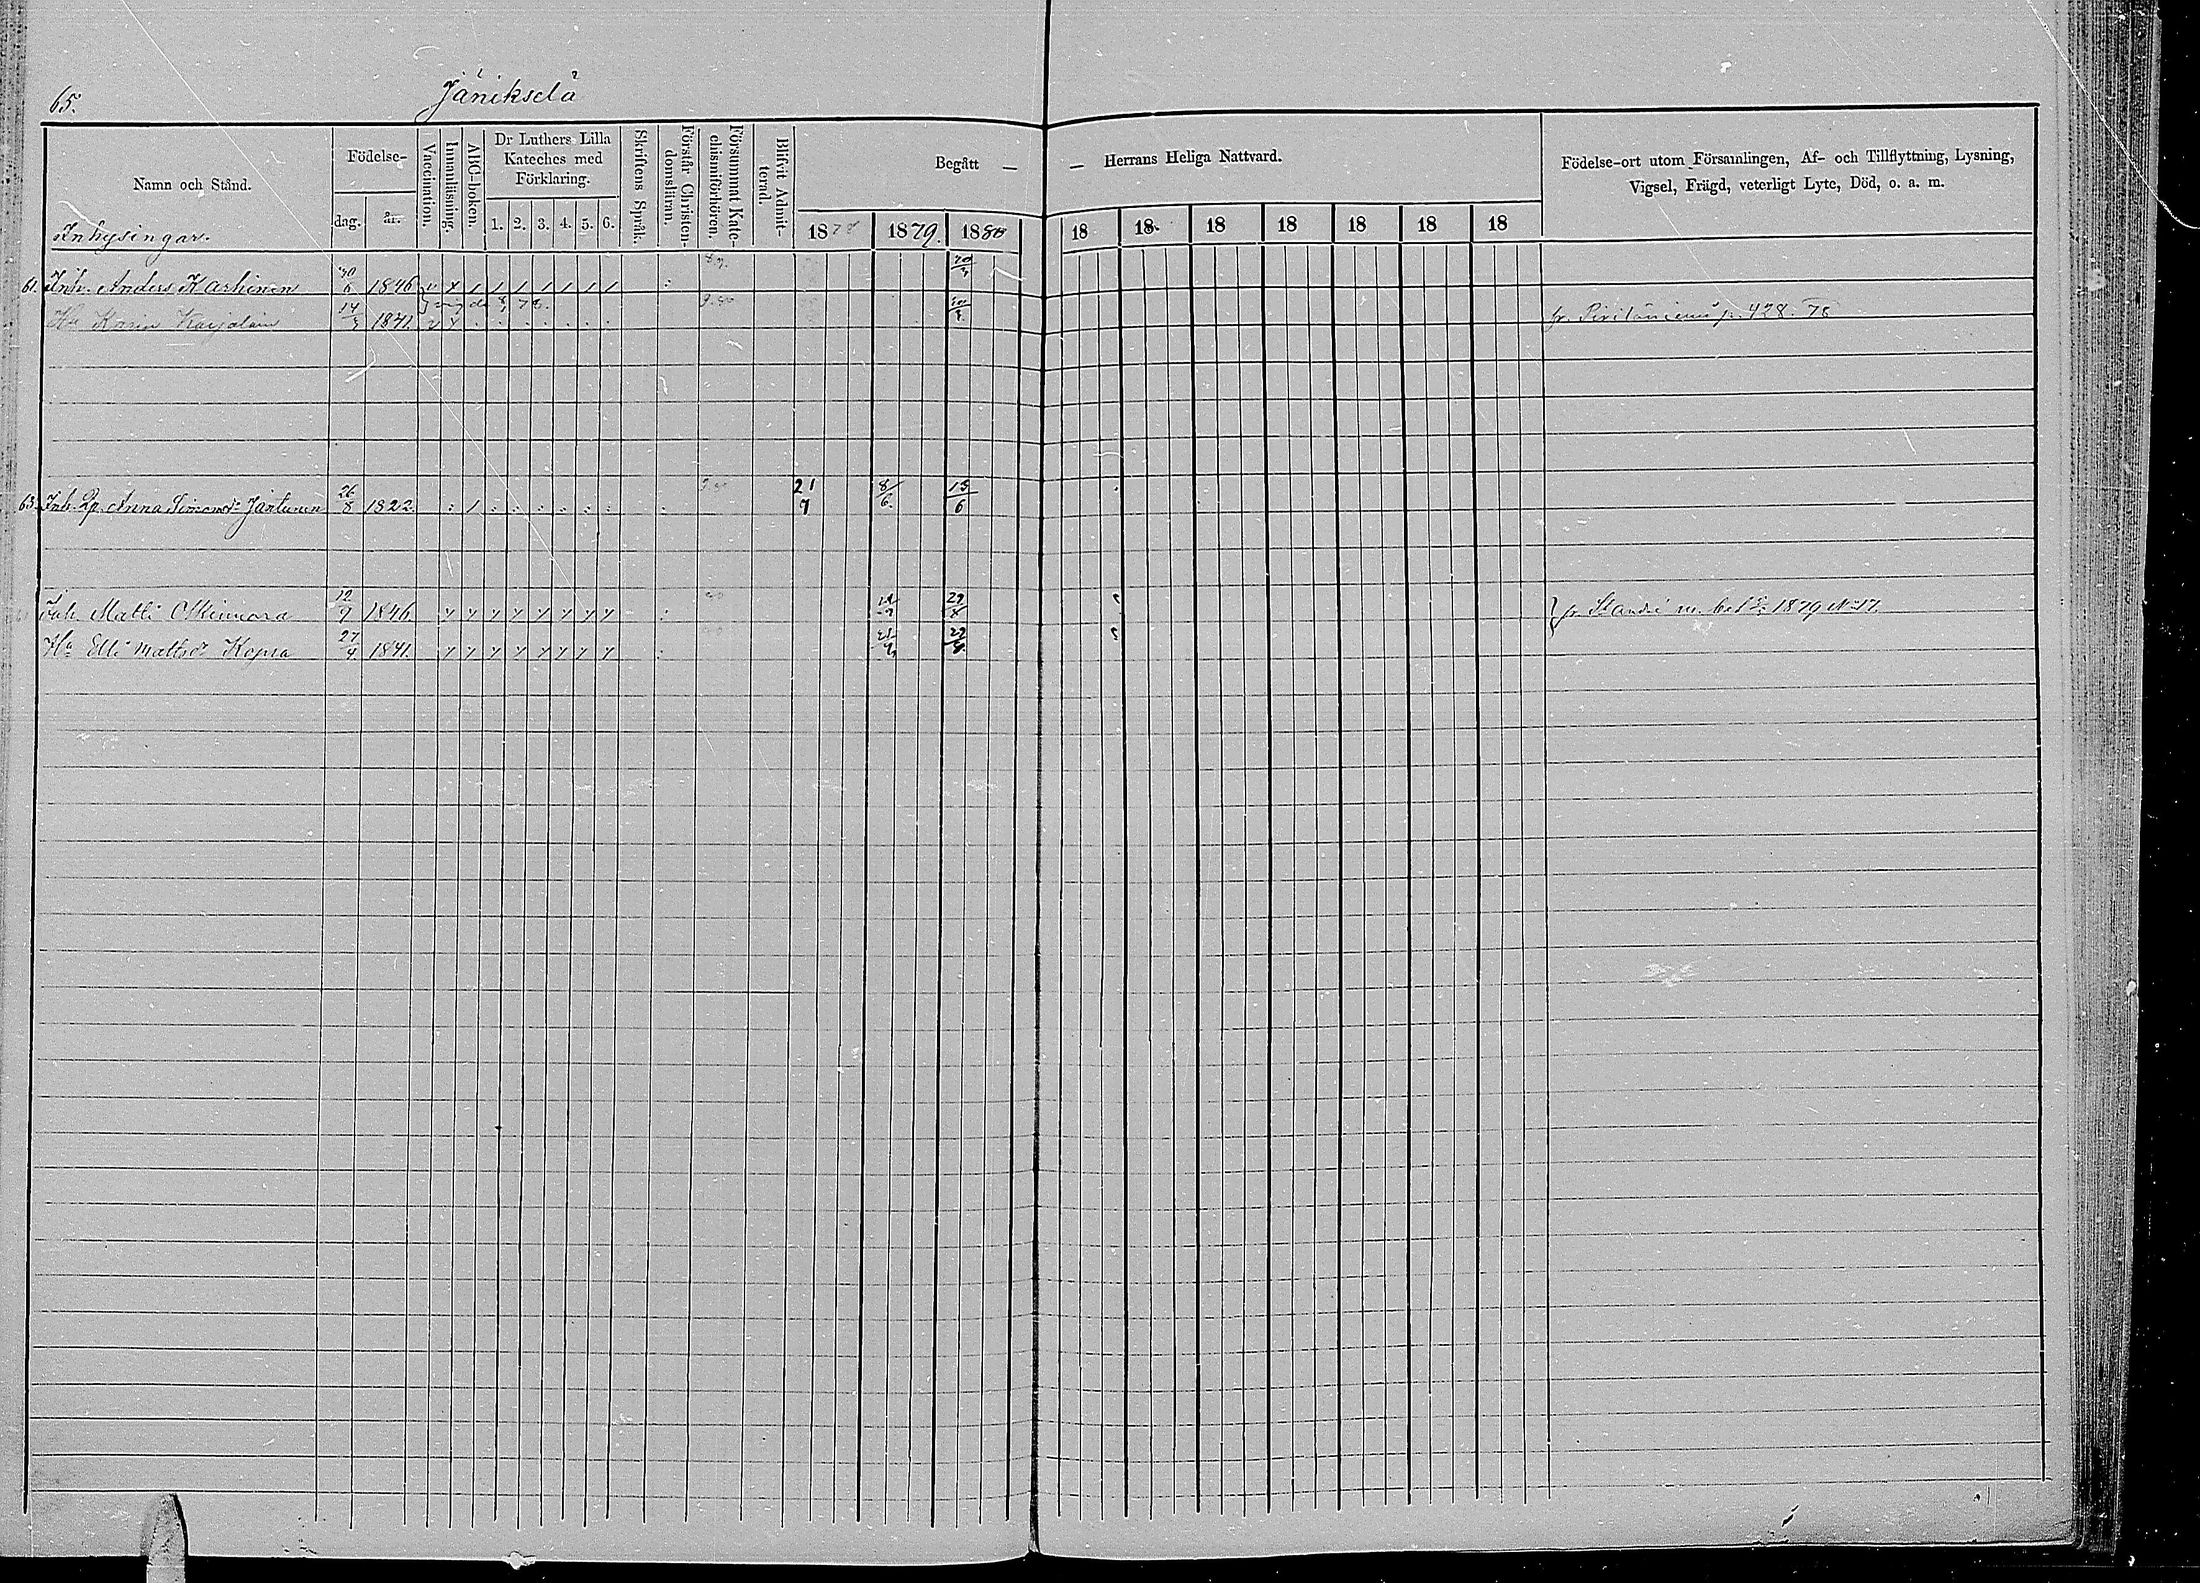 65.
Jänikselä
Namn och Stånd.
Födelse-
dag.
år.
Vaccination.
Innanläsning.
ABC-boken.
Dr Luthers Lilla
Kateches med
Förklaring.
1. 2. 3. 4. 5. 6.
Skriftens Språk.
Förstår Christen-
domsläran.
Försummat Kate-
chismiförhören.
Blifvit Admit-
terad.
Begått — — Herrans Heliga Nattvard.
1878 1879. 1880 18 18 18 18 18 18 18
Födelse-ort utom Församlingen, Af- och Tillflyttning, Lysning,
Vigsel, Frägd, veterligt Lyte, Död, o. a. m.
Inhysingar.
61. Inh. Anders Karhinen 30/6 1846
Hu Karin Karjalain 14/3 1841. p. 428. 78
63. Inh. Anna Simonsdr Jäntunen 26/8 1822. 21/9 8/6. 13/6
Inh. Matti 12/9 1846. 29/8 fr. St Andr. 1879 No 17.
Hu Elli Mattsdr Kopra 27/4. 1841.